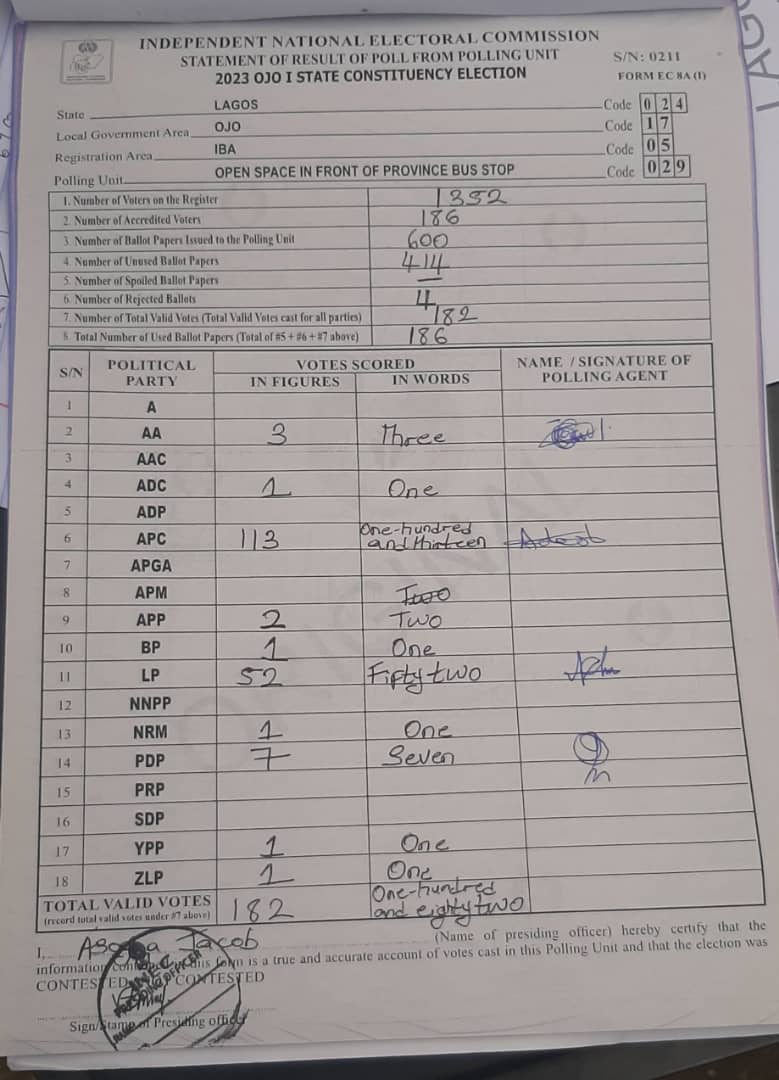 INDEPENDENT NATIONAL ELECTORAL COMMISSION
STATEMENT OF RESULT OF POLL FROM POLLING UNIT
S/N: 0211
2023 OJO I STATE CONSTITUENCY ELECTION
FORM EC 8A (I)
State LAGOS Code 0 2 4
Local Government Area OJO Code 1 7
Registration Area IBA Code 0 5
Polling Unit OPEN SPACE IN FRONT OF PROVINCE BUS STOP Code 0 2 9
1. Number of Voters on the Register 1352
2. Number of Accredited Voters 186
3. Number of Ballot Papers Issued to the Polling Unit 600
4. Number of Unused Ballot Papers 414
5. Number of Spoiled Ballot Papers –
6. Number of Rejected Ballots 4
7. Number of Total Valid Votes (Total Valid Votes cast for all parties) 182
8. Total Number of Used Ballot Papers (Total of #5 + #6 + #7 above) 186
S/N POLITICAL PARTY VOTES SCORED NAME / SIGNATURE OF POLLING AGENT
IN FIGURES IN WORDS
1 A
2 AA 3 Three
3 AAC
4 ADC 1 One
5 ADP
6 APC 113 One-hundred and thirteen
7 APGA
8 APM Two
9 APP 2 Two
10 BP 1 One
11 LP 52 Fifty two
12 NNPP
13 NRM 1 One
14 PDP 7 Seven
15 PRP
16 SDP
17 YPP 1 One
18 ZLP 1 One
TOTAL VALID VOTES (record total valid votes under #7 above) 182 One-hundred and eighty two
I, Jacob (Name of presiding officer) hereby certify that the
information contained in this form is a true and accurate account of votes cast in this Polling Unit and that the election was
CONTESTED CONTESTED
PRESIDING OFFICER
Sign/Stamp of Presiding officer
ORIGINAL